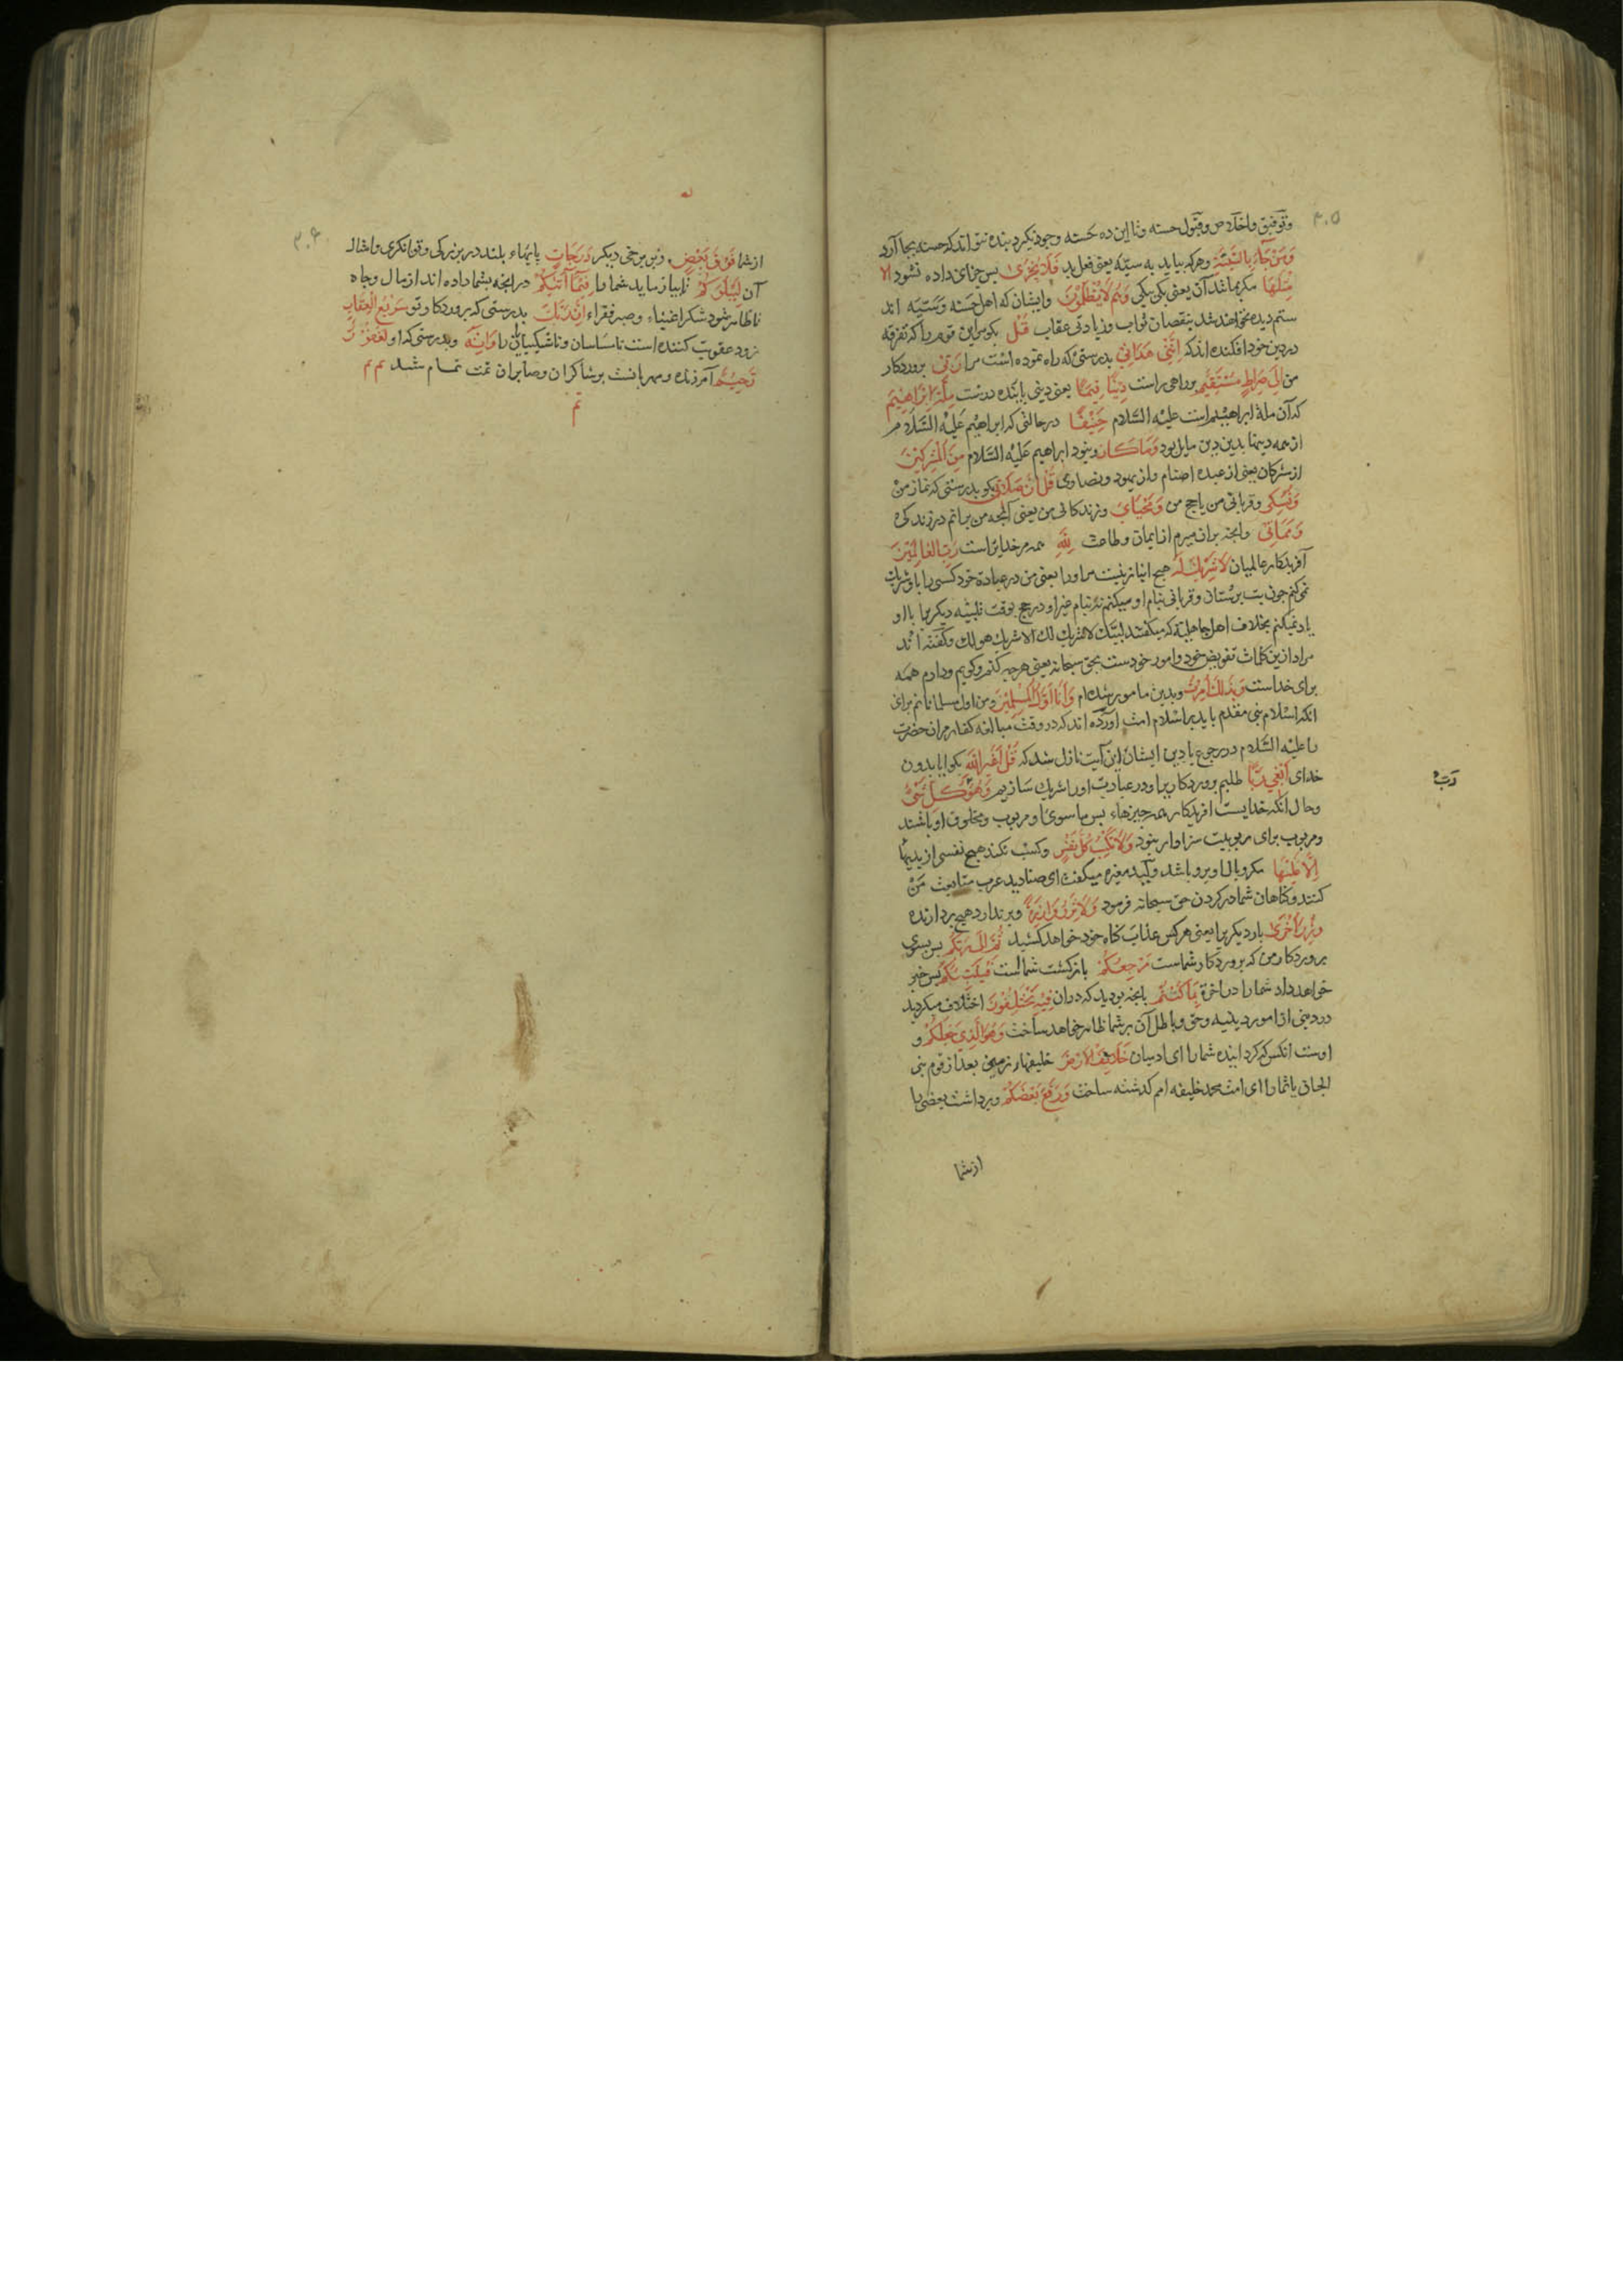 ۳۰۵
و توفیق و اخلاص و قبول حسنه و تا این ده حسنه وجود نکیرد بنده نتواند که حسنه بجا آورد
وَمَنْ جَآءَ بِالسَّیِّئَةِ و هرکه بیاید به سیّئه یعنی فعل بد فَلَا یُجْزٰی بس جزای داده نشود الا
مِثْلَهَا مکر مانند آن یعنی یکی بیکی وَهُمْ لَا یُظْلَمُوْنَ و ایشان که اهل حسنه و سیّئه اند
ستم دیده نخواهند شد بنقصان ثواب و زیادتی عقاب قُلْ بکو مر این قوم را که تفرقه
در دین خود افکنده اند که اِنَّنِیْ هَدٰانِیْ بدرستی که راه نموده است مرا رَبِّیْ بروردکار
من اِلٰی صِرَاطٍ مُسْتَقِیْمٍ براهی راست دِیْنًا قِیَمًا یعنی دینی پاینده درست مِلَّةَ اِبْرَاهِیْمَ
که آن ملة ابراهیم است علیه السّلام حَنِیْفًا در حالتی که ابراهیم علیه السّلام
از همه دینها بدین دین مایل بود وَمَا کَانَ و نبود ابراهیم علیه السّلام مِنَ الْمُشْرِکِیْنَ
از مشرکان یعنی از عبده اصنام و از یهود و نصاری قُلْ اِنَّ صَلٰوتِیْ بکو بدرستی که نماز من
وَنُسُکِیْ و قربانی من یا حج من وَمَحْیَایَ و زندکانی من یعنی آنجه من برانم در زندکی
وَمَمَاتِیْ و آنجه بران میرم از ایمان و طاعت لِلّٰهِ همه مر خدایراست رَبِّ الْعَالَمِیْنَ
آفریدکار عالمیان لَا شَرِیْكَ لَهُ هیج انباز نیست مر او را یعنی من در عبادة خود کسی را با او شریك
نمی کنم جون بت برستان و قربانی بنام او میکنم نه بنام غیر او و در حج بوقت تلبیه دیکریرا با او
یاد نمیکنم بخلاف اهل جاهلیة که میکفتند لبّیك لا شریك لك الا شریك هو لك و کفته اند
مراد ازین کلمات تفویض خود و امور خودست بحق سبحانه یعنی هرجه کنم و کویم و دارم همه
برای خداست وَبِذٰلِكَ اُمِرْتُ و بدین مامور شده ام وَاَنَا اَوَّلُ الْمُسْلِمِیْنَ و من اول مسلمانانم برای
انکه اسلام نبی مقدم باید بر اسلام امت آورده اند که در وقت مبالغه کفار مر ان حضرت
را علیه السّلام در رجوع با دین ایشان این آیت نازل شد که قُلْ اَغَیْرَ اللّٰهِ بکو ایا بدون
خدای اَبْغِیْ رَبًّا طلبم بروردکاریرا و در عبادت او را شریك سازیم وَهُوَ کُلِّ شَیْءٍ
رَبُّ
و حال انکه خدایست افریدکار همه جیزها، بس ما سوی او مربوب و مخلوق او باشند
و مربوب برای ربوبیت سزاوار نبود وَلَا تَکْسِبُ کُلُّ نَفْسٍ و کسب نکند هیج نفسی از بدیها
اِلَّا عَلَیْهَا مکر وبال او بر و باشد ولید مغیره میکفت ای صنادید عرب متابعت من
کنند و کناهان شما در کردن حق سبحانه فرمود وَلَا تَزِرُ وَازِرَةٌ و برندارد هیج بردارنده
وِزْرَ اُخْرٰی بار دیکریرا یعنی هرکس عذاب کناه خود خواهد کشید ثُمَّ اِلٰی رَبِّکُمْ بس بسوی
بروردکار من که بروردکار شماست مَرْجِعُکُمْ بازکشت شماست فَیُنَبِّئُکُمْ بس خبر
خواهد داد شما را در اخرة بِمَا کُنْتُمْ بانجه بودید که دران فِیْهِ تَخْتَلِفُوْنَ اختلاف میکردید
در دینی از امور دینیه و حق و باطل آن بر شما ظاهر خواهد ساخت وَهُوَ الَّذِیْ جَعَلَکُمْ و
اوست انکس که کردانیده شما را ای ادمیان خَلَائِفَ الْاَرْضِ خلیفهاء زمین بعد از قوم بنی
الجان یا شما را ای امت محمد خلیفه امم کذشته ساخت وَرَفَعَ بَعْضَکُمْ و برداشت بعضی را
از شما
۳۰۶
از شما فَوْقَ بَعْضٍ و بر برخی دیکر دَرَجَاتٍ پایهاء بلند در بزرکی و توانکری و امثال
آن لِیَبْلُوَکُمْ تا بیازماید شما را فِیْمَا آتٰیکُمْ در انجه بشما داده اند از مال و جاه
تا ظاهر شود شکر اغنیاء و صبر فقراء اِنَّ رَبَّكَ بدرستی که بروردکار تو سَرِیْعُ الْعِقَابِ
زود عقوبت کننده است ناسپاسان و ناشکیبایان را وَاِنَّهُ و بدرستی که او لَغَفُوْرٌ
رَحِیْمٌ آمرزنده و مهربانست بر شاکران و صابران تمت تمام شد تم تم
تم